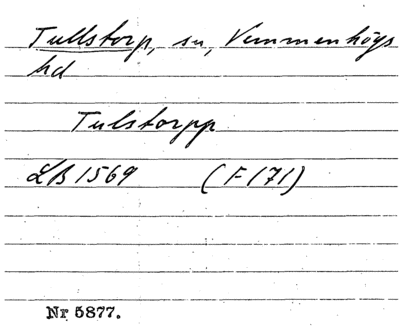 Tullstorp, sn, Vemmenhögs
hd
Tulstorpp
LB 1569 (F 171)
Nr 5877.